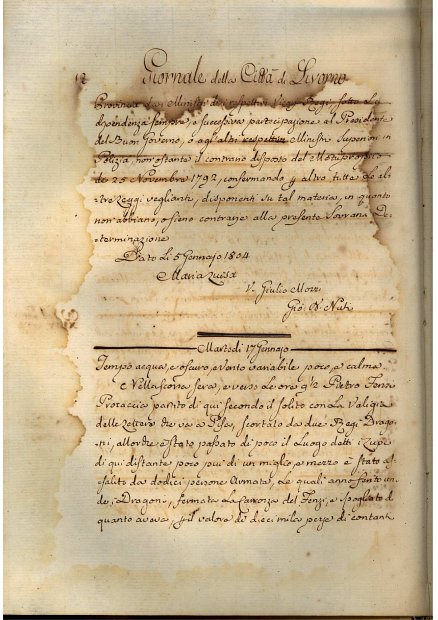 12 Giornale della Città di Livorno
Provincia, dai Ministri de rispettivi Regi, sotto la di
pendenza sempre, e successiva partecipazione al Presidente
del Buon Governo, o agl'altri respettivi Ministri Superiori in
Polizia, non ostante il contrario disposto del Motuproprio
de 25 Novembre 1792, confermando p altro tutte le al
tre Leggi veglianti, disponenti su tal materia, in quanto
non abbiano, o sieno contrarie alla presente Sovrana De=
terminazione
Dato li 5 Gennajo 1804
Maria Luisa
V. Giulio Mozzi
Gio: B. Nuti
Martedì 17 Gennajo
Tempo acqua, e oscuro, vento variabile poco, e calma
e Nella scorsa sera, e verso le ore 9½ Pietro Fonzi
Procaccia partito di qui secondo il solito con la Valigia
delle Lettere che va a Pisa, scortato da due Regi Drago=
ni, allorchè è stato passato di poco il Luogo detto i
di qui distante poco più di un miglio, e mezzo è stato as=
salito da dodici persone armate, le quali anno
de i Dragoni, fermata la Carrozza del Fonzi, e spogliato di
quanto aveva, p il valore di dieci mila pezze di contanti